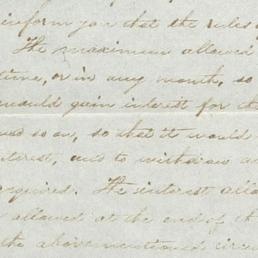 inform you that the rules
The maximum allowed
time, or in any month, so
would gain interest for th
and so on, so that it would
interest, and to withdraw
required. The interest allo
allowed at the end of th
the above mentioned circu